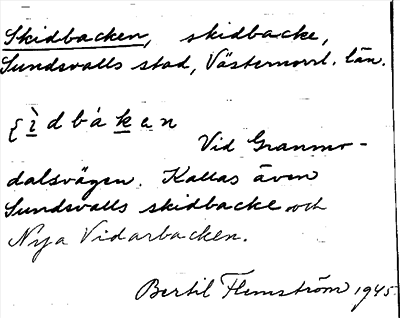 Skidbacken, skidbacke,
Sundsvalls stad, Västernorrl. län.
ʃìdbákan
Vid Granmo-
dalsvägen. Kallas även
Sundsvalls skidbacke och
Nya Vidarbacken.
Bertil Flemström 1945.